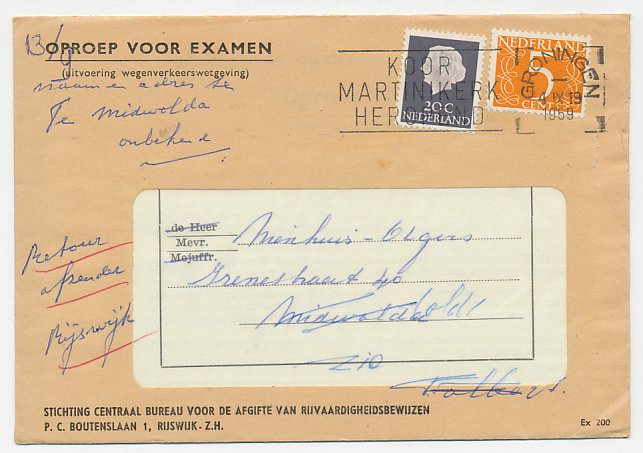 13/9
OPROEP VOOR EXAMEN
(uitvoering wegenverkeerswetgeving)
naam en adres te
Te Midwolda
onbekend
KOOR
MARTINIKERK
HERO ND
20 C
NEDERLAND
NEDERLAND
5
CENT
GRONINGEN
4 IX 19
1969
de Heer
Mevr. Menhuis - Olgers
Mejuffr.
Grenestraat 40
Midwolda
Retour
afzender
Rijswijk
STICHTING CENTRAAL BUREAU VOOR DE AFGIFTE VAN RIJVAARDIGHEIDSBEWIJZEN
P. C. BOUTENSLAAN 1, RIJSWIJK - Z.H.
Ex 200